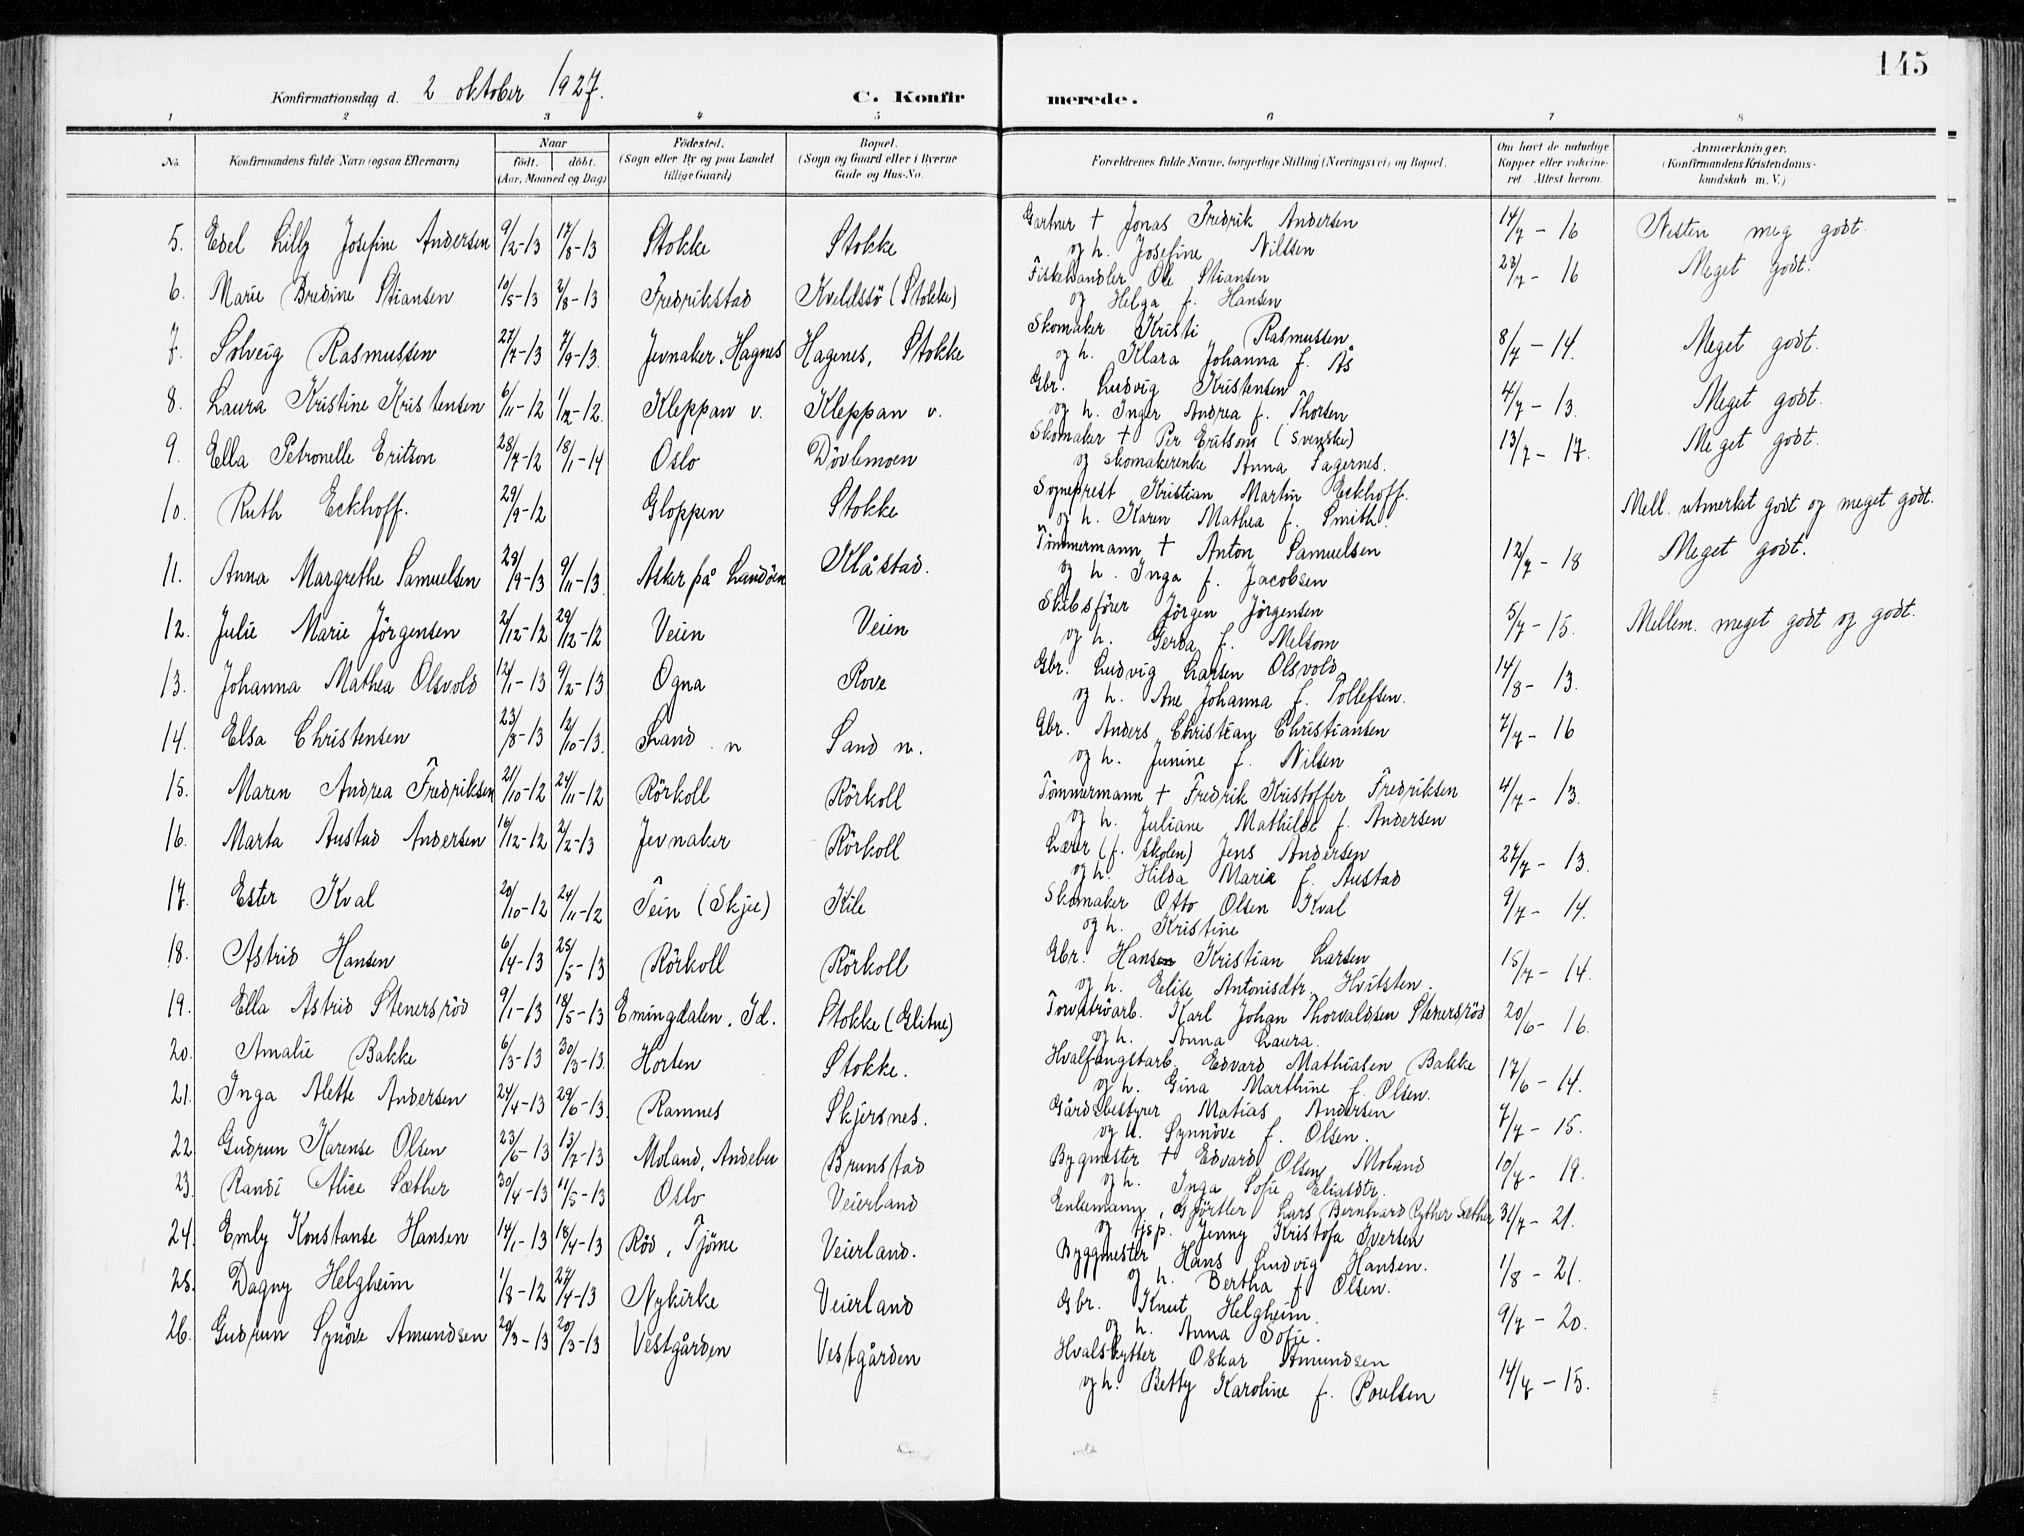 145
Konfirmationsdag d. 2 oktober 1927.
C. Konfirmerede.
1 2 3 4 5 6 7 8
No.
Konfirmandens fulde Navn (ogsaa Efternavn)
Naar
födt. döbt.
(Aar, Maaned og Dag)
Födested.
(Sogn eller By og paa Landet
tillige Gaard)
Bopæl.
(Sogn og Gaard eller i Byerne
Gade og Hus-No.
Forældrenes fulde Navne, borgerlige Stilling (Næringsvei) og Bopæl.
Om havt de naturlige
Kopper eller vaccine-
ret. Attest herom.
Anmærkninger.
(Konfirmandens Kristendoms-
kundskab m. V.)
5. Edel Lilly Josefine Andersen 9/2-13 17/8-13 Stokke Stokke Gartner † Jonas Fredrik Andersen 14/7 - 16 Nesten meg godt.
og h. Josefine Nilssen
6. Marie Bredine Stiansen 10/5-13 3/8-13 Fredrikstad Kveldssö (Stokke) Fiskehandler Ole Stiansen 23/7 - 16 Meget godt.
og Helga f. Hansen
7. Solveig Rasmussen 27/7-13 7/9-13. Jevnaker, Hagnes Hagenes, Stokke Skomaker Kristi Rasmussen 8/7 - 14. Meget godt.
og h. Klara Johanna f. Ås
8. Laura Kristine Kristensen 6/11-12 1/12-12. Kleppan v. Kleppan v. Gbr. Ludvig Kristensen 4/7 - 13. Meget godt.
og h. Inger Andrea f. Thorsen
9. Ella Petronelle Eritson 28/7-12 18/1-14 Oslo Dövlemoen Skomaker † Per Eritson (svenske) 13/7 - 17. Meget godt.
og skomakerenke Anna Fagernes.
10. Ruth Eckhoff. 29/9-12 Gloppen Stokke Sogneprest Kristian Martin Eckhoff. Mell. utmerket godt og meget godt.
og h. Karen Mathea f. Smith.
11. Anna Margrethe Samuelsen 28/9-13 9/11-13. Asker på Landöen Klåstad. Tömmermann † Anton Samuelsen 12/7 - 18 Meget godt.
og h. Inga f. Jacobsen
12. Julie Marie Jörgensen 2/12-12 29/12-12 Veien Veien Skibsförer Jörgen Jörgensen 5/7 - 15. Mellem. meget godt og godt.
og h. Gerda f. Melsom
13. Johanna Mathea Olsvold 12/1-13 9/2-13 Ogna Rove Gbr. Ludvig Larsen Olsvold 14/8 - 13.
og h. Ane Johanna f. Tollefsen.
14. Elsa Christensen 23/8-13 12/10-13. Sand n Sand n. Gbr. Anders Christian Christiansen 7/7 - 16
og h. Junine f. Nilsen
15. Maren Andrea Fredriksen 21/10-12 24/11-12 Rörkoll Rörkoll Tömmermann † Fredrik Kristoffer Fredriksen 4/7 - 13.
og h. Juliane Mathilde f. Andersen
16. Marta Austad Andersen 16/12-12 2/2-13 Jevnaker Rörkoll Lærer (f. skolen) Jens Andersen 27/7 - 13.
og h. Hilda Marie f. Austad
17. Ester Kval 20/10-12 24/11-12 Tein (Skjee) Kile Skomaker Otto Olsen Kval 9/7 - 14.
og h. Kristine
18. Astrid Hansen 6/4-13 25/5-13 Rörkoll Rörkoll Gbr. Hansen Kristian Larsen 15/7 - 14.
og h. Elise Antonisdtr. Hvitsten.
19. Ella Astrid Stenersröd 9/1-13 18/5-13 Emingdalen. Id. Stokke (Glitne) Torvströarb. Karl Johan Thorvaldsen Stenersröd 20/6 - 16.
og h. Anna Laura.
20. Amalie Bakke 6/3-13 30/3-13. Horten Stokke. Hvalfangstarb. Edvard Mathiasen Bakke 17/6 - 14.
og h. Gina Marthine f. Olsen.
21. Inga Alette Andersen 24/4-13 29/6-13. Ramnes Skjersnes. Gårdsbestyrer Matias Andersen 7/7 - 15.
og h. Synnöve f. Olsen.
22. Gudrun Karense Olsen 23/6-13 13/7-13 Moland, Andebu Brunstad Bygmester † Edvard Olsen Moland 10/7 - 19.
og h. Inga Sofie Eliasdtr.
23. Randi Alice Sæther 30/4-13 11/5-13 Oslo Veierland Enkemann, Gjörtler Lars Bernhard Ryther Sæther 31/7 - 21.
og tjsp. Jenny Kristofa Iversen
24. Emly Konstanse Hansen 14/1-13 18/4-13 Röd, Tjöme Veierland. Byggmester Hans Ludvig Hansen. 1/8 - 21.
og h. Bertha f. Olsen.
25. Dagny Helgheim 1/8-12 27/4-13 Nykirke Veierland Gbr. Knut Helgheim. 9/7 - 20.
og h. Anna Sofie.
26. Gudrun Synöve Amundsen 20/3-13 20/3-13 Vestgården Vestgården Hvalskytter Oskar Amundsen 14/7 - 15.
og h. Betty Karoline f. Poulsen